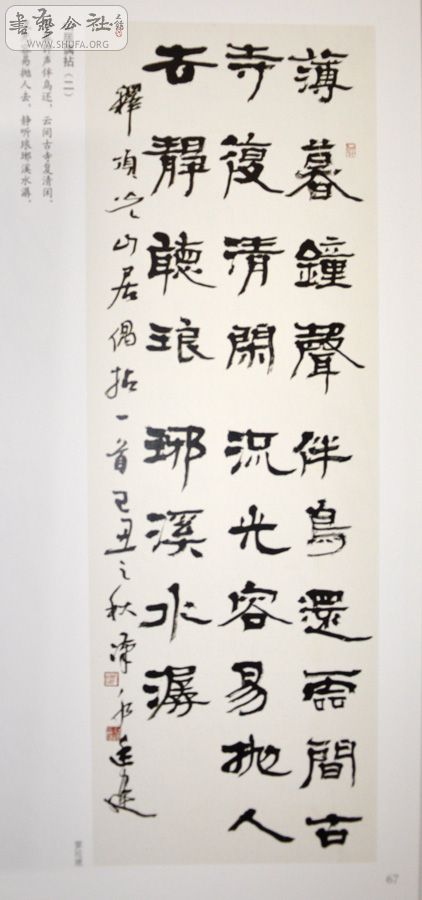 書藝公社
WWW.SHUFA.ORG
薄暮鐘聲伴鳥還雲間古
寺復清閑流光容易抛人
去靜聽琅琊溪水潺
釋頂山居偶拈一首己丑之秋
居偶拈（二）
钟声伴鸟还，云间古寺复清闲。
易抛人去，静听琅琊溪水潺。
67